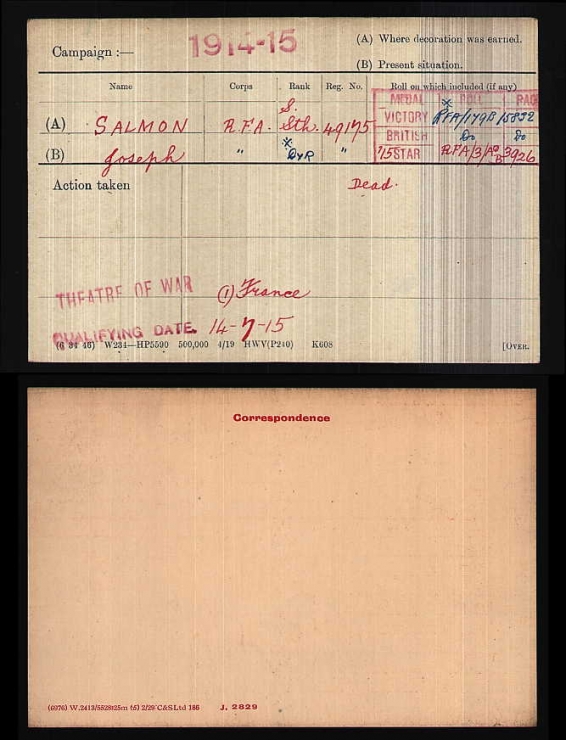 Campaign :— 1914-15 (A) Where decoration was earned.
(B) Present situation.
Name Corps Rank Reg. No. Roll on which included (if any)
MEDAL ROLL PAGE
(A) SALMON R.F.A. S. Sth. 49175 VICTORY * RFA/179B 15832
BRITISH Do Do
(B) Joseph " * Dvr " '15 STAR RFA/3/ 3926
Action taken Dead.
THEATRE OF WAR (1) France
QUALIFYING DATE. 14-7-15
(6 34 46) W234—HP5590 500,000 4/19 HWV(P240) K608 [OVER.
Correspondence
(6976) W.2413/ 2/29 C&SLtd 186 J. 2829